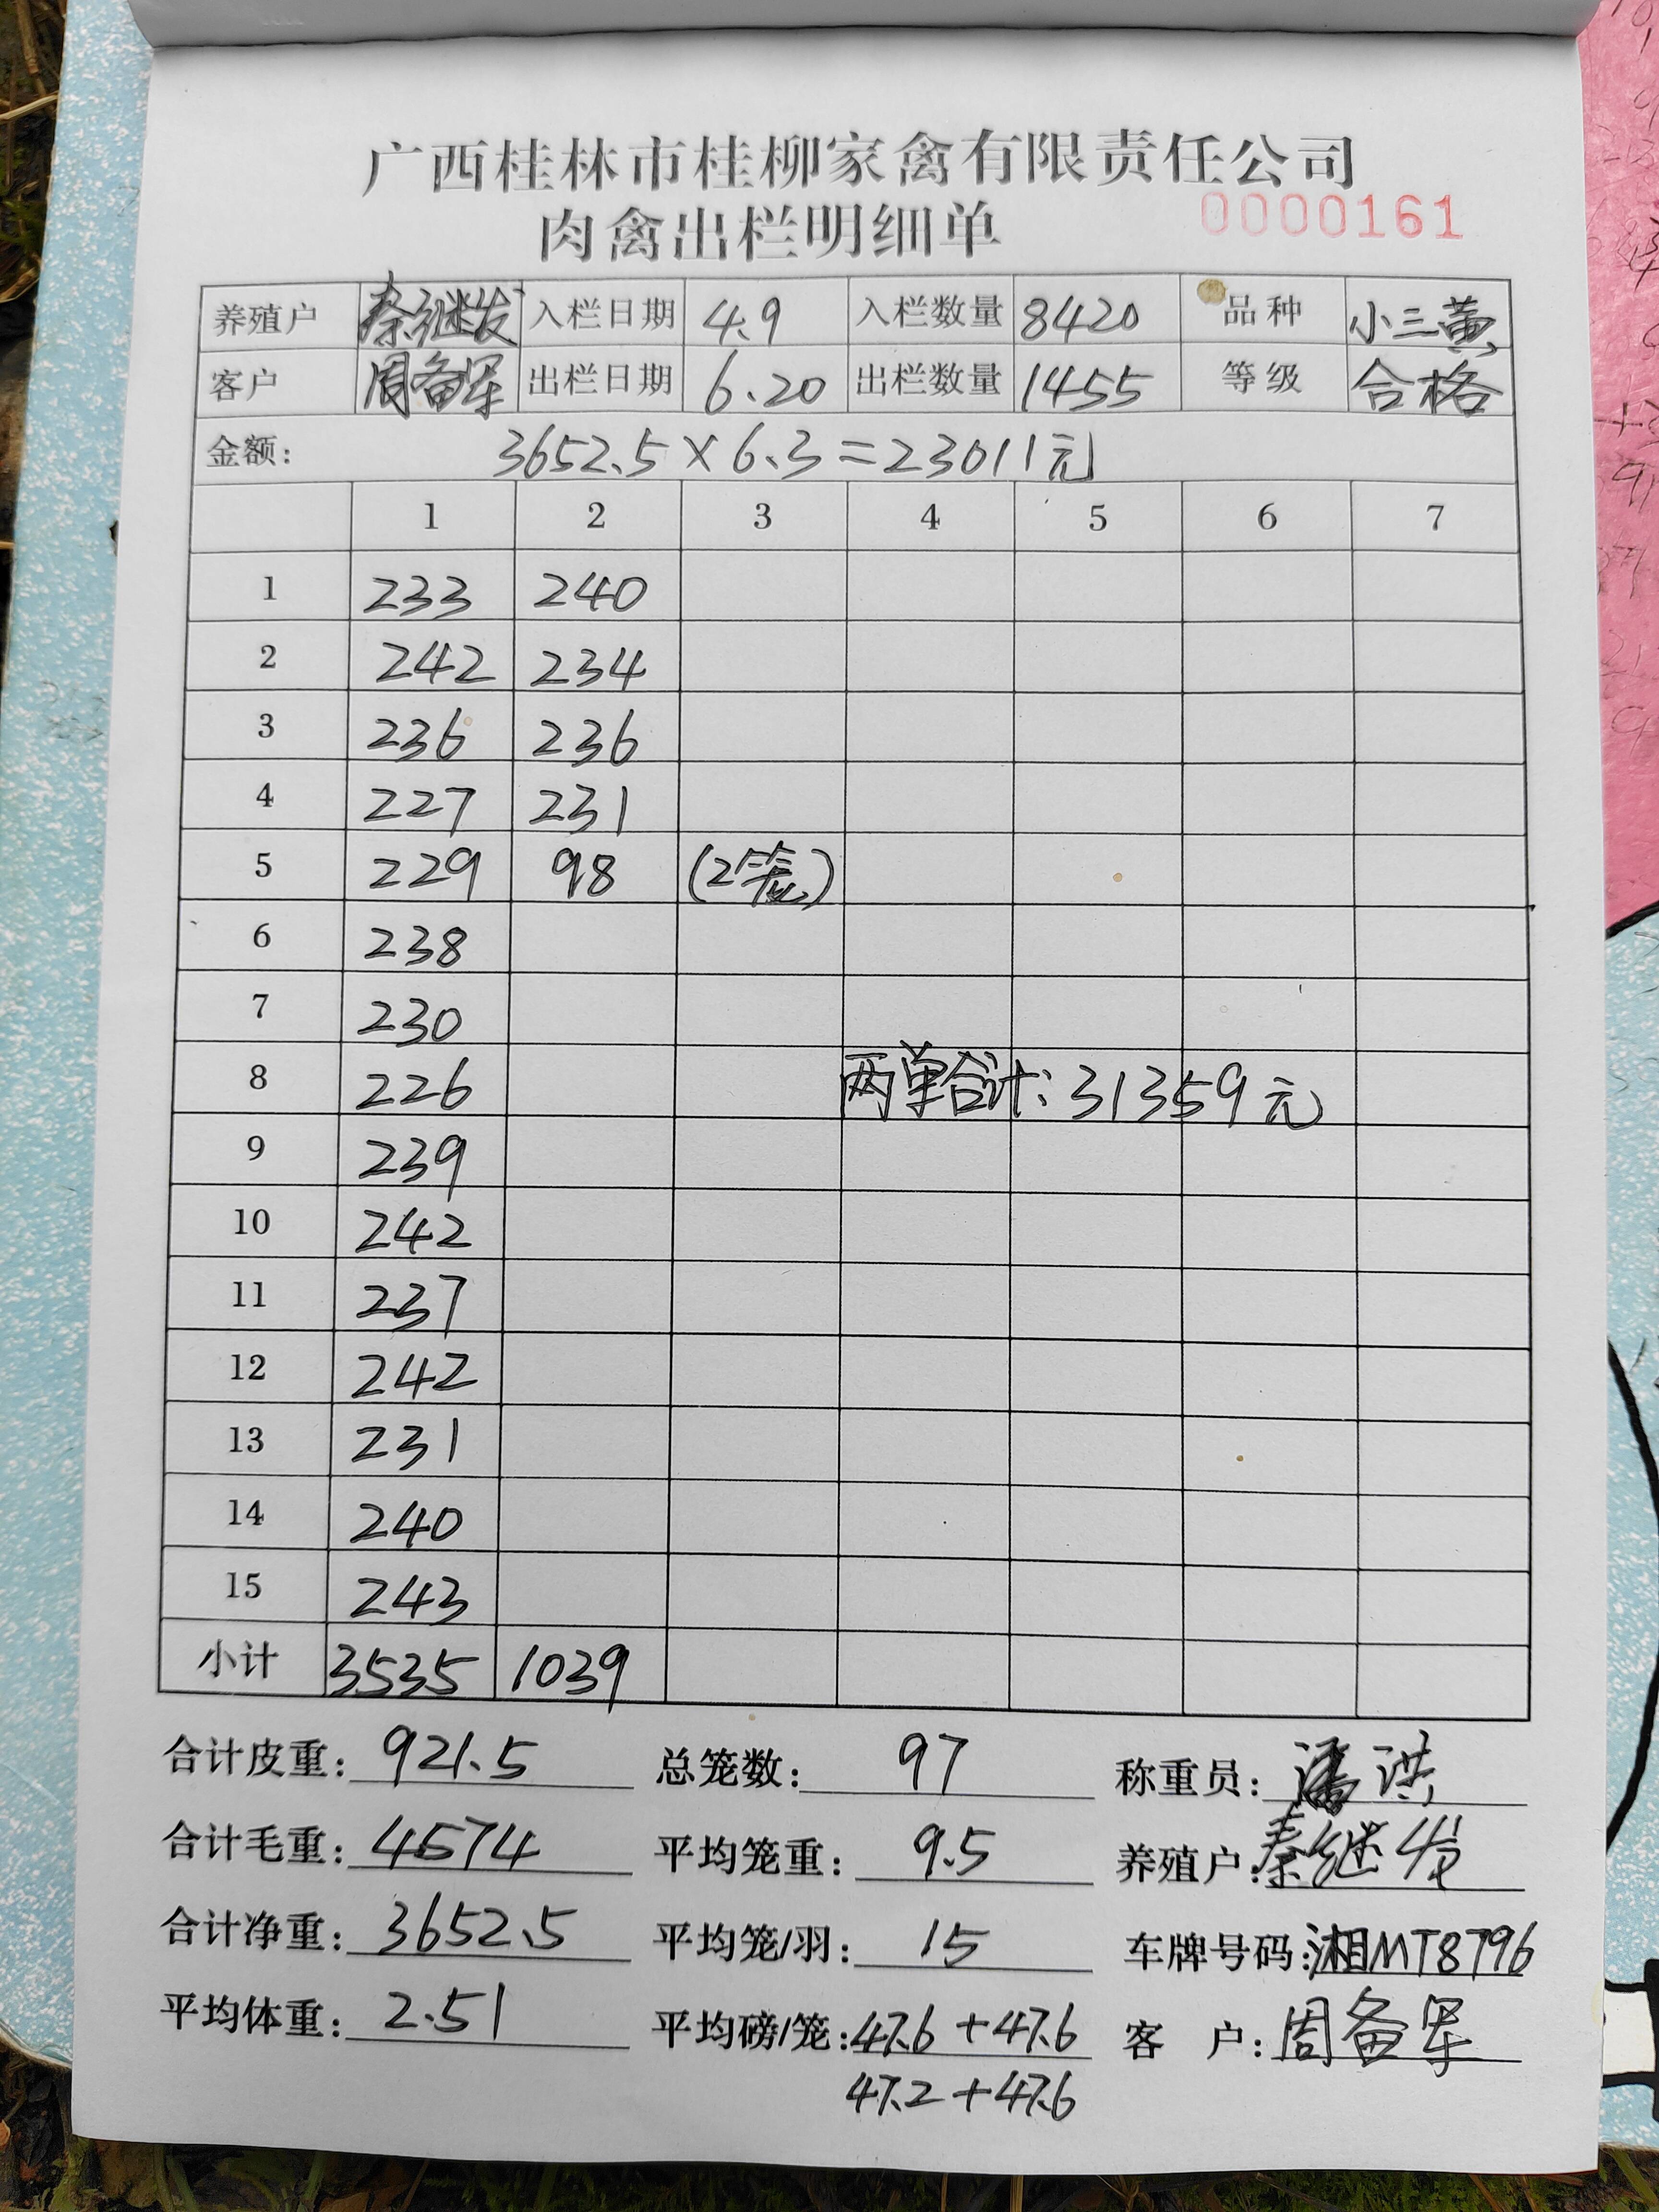 广西桂林市桂柳家禽有限责任公司
肉禽出栏明细单 0000161
养殖户 秦继发 入栏日期 4.9 入栏数量 8420 品种 小三黄
客户 周备军 出栏日期 6.20 出栏数量 1455 等级 合格
金额: 3652.5×6.3=23011元
1 2 3 4 5 6 7
1 233 240
2 242 234
3 236 236
4 227 231
5 229 98 (2笼)
6 238
7 230
8 226 两单合计:31359元
9 239
10 242
11 237
12 242
13 231
14 240
15 243
小计 3535 1039
合计皮重: 921.5 总笼数: 97 称重员: 潘洪
合计毛重: 4574 平均笼重: 9.5 养殖户: 秦继发
合计净重: 3652.5 平均笼/羽: 15 车牌号码: 湘MT8796
平均体重: 2.51 平均磅/笼: 47.6+47.6 客 户: 周备军
47.2+47.6